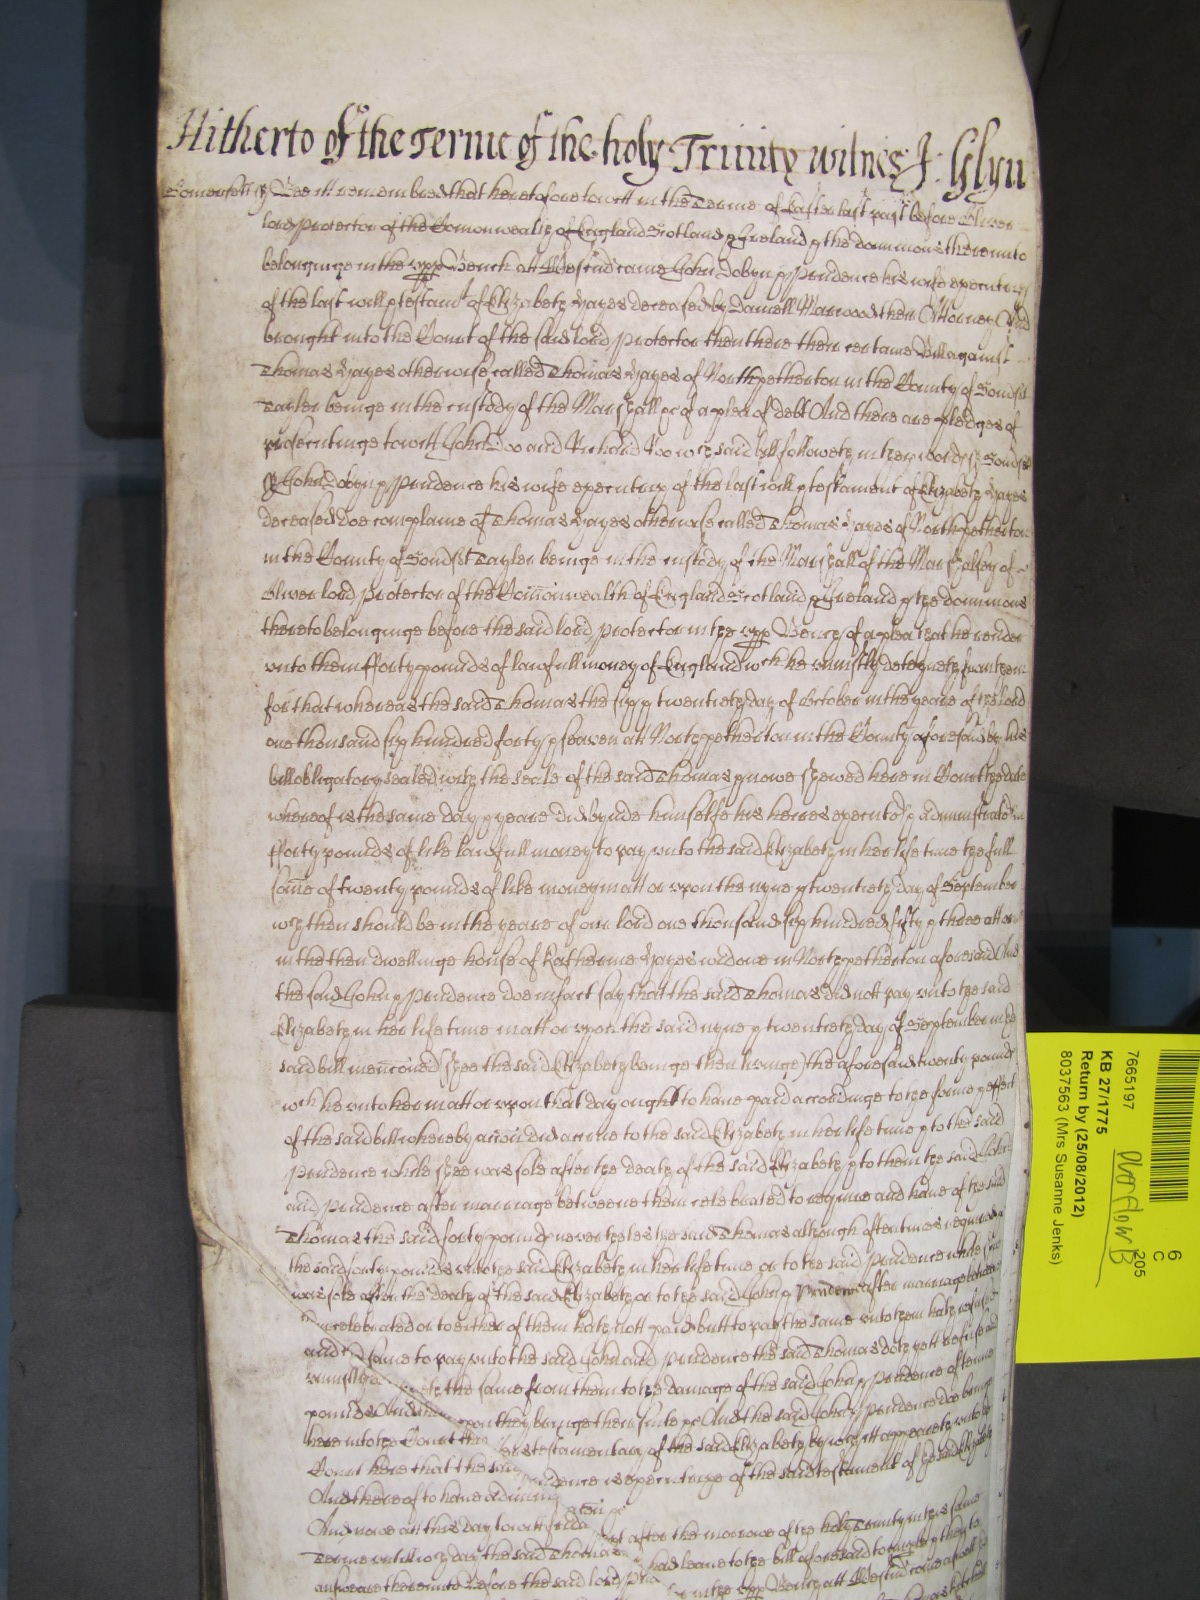 Hitherto of the Terme of the holy Trinity witnes J: Glyn
Bee itt remembred that heretofore to witt in the Terme of Easter last past before Oliver
lord Protector of the Comonwealth of England Scotland & Ireland & the dominions thereunto
belonginge in the upp Bench att Westm̄ came John Dobyn & Prudence his wife executrix
of the last will & testamt of Elizabeth Hayes deceased by Darnell Marwood their Attorney And
brought into the Court of the said lord Protector then there their certaine Bill against
Thomas Hayes otherwise called Thomas Hayes of Northpetherton in the County of Somsīt
Tayler beinge in the custody of the Marshall &c of a plea of debt And there are pledges of
prosecutinge to witt John Doo and Richard Roo wch said bill followeth in these words Somsīt
John Dobyn & Prudence his wife executrix of the last will & testament of Elizabeth Hayes
deceased doe complaine of Thomas Hayes otherwise called Thomas Hayes of Northpetherton
in the County of Somsīt Tayler beinge in the custody of the Marshall of the Marshalsey of
Oliver lord Protector of the Com̄onwealth of England Scotland & Ireland & the dominions
thereto belonginge before the said lord Protector in the upp Bench of a plea that he render
unto them fforty pounds of lawfull money of England wch he uniustly deteyneth from them
for that whereas the said Thomas the six & twentieth day of October in the yeare of the lord
one thousand six hundred forty & seaven att Northpetherton in the County aforesaid by his
bill obligatory sealed with the seale of the said Thomas & nowe shewed here in Court the date
whereof is the same day & yeare did bynde himselfe his heires executors & administrators in
fforty pounds of like lawfull money to pay unto the said Elizabeth in her life time the full
som̄e of twenty pounds of like money in att or upon the nyne & twentieth day of September
wch then should be in the yeare of our lord one thousand six hundred fifty & three att or
in the then dwellinge house of Katherine Hayes widowe in Northpetherton aforesaid And
the said John & Prudence doe in fact say that the said Thomas did nott pay unto the said
Elizabeth in her life time in att or upon the said nyne & twentieth day of September in the
said bill menc̄oned (shee the said Elizabeth beinge then livinge) the aforesaid twenty pounds
wch he unto her in att or upon that day ought to have paid accordinge to the forme & effect
of the said bill whereby acc̄on did accrue to the said Elizabeth in her life time & to the said
Prudence while shee was sole after the death of the said Elizabeth & to them the said John
and Prudence after marriage betweene them celebrated to require and have of the said
Thomas the said forty pounds neverthelesse the said Thomas although oftentimes required
the said forty pounds unto the said Elizabeth in her life time or to the said Prudence while shee
was sole after the death of the said Elizabeth or to the said John & Prudence after marriage betweene
celebrated or to either of them hath nott paid butt to pay the same unto them hath refused
and the same to pay unto the said John and Prudence the said Thomas doth yett refuse and
the same from them to the damage of the said John & Prudence of tenne
pounds And thereupon they bringe their suite &c And the said John & Prudence doe bringe
here into the Court testamentary of the said Elizabeth by which itt appeareth unto the
Court here that the said Prudence is executrixe of the said testament of the said Elizabeth
And thereof to have
And nowe att this day to witt after the morrowe of the holy Trinity in the same
Terme untill wch day the said Thomas had leave to the bill aforesaid to imparle & then to
answeare thereunto before the said lord in the upp Bench att Westm̄ came aswell
7665197
KB 27/1775
Return by (25/08/2012)
8037563 (Mrs Susanne Jenks)
6
C
205